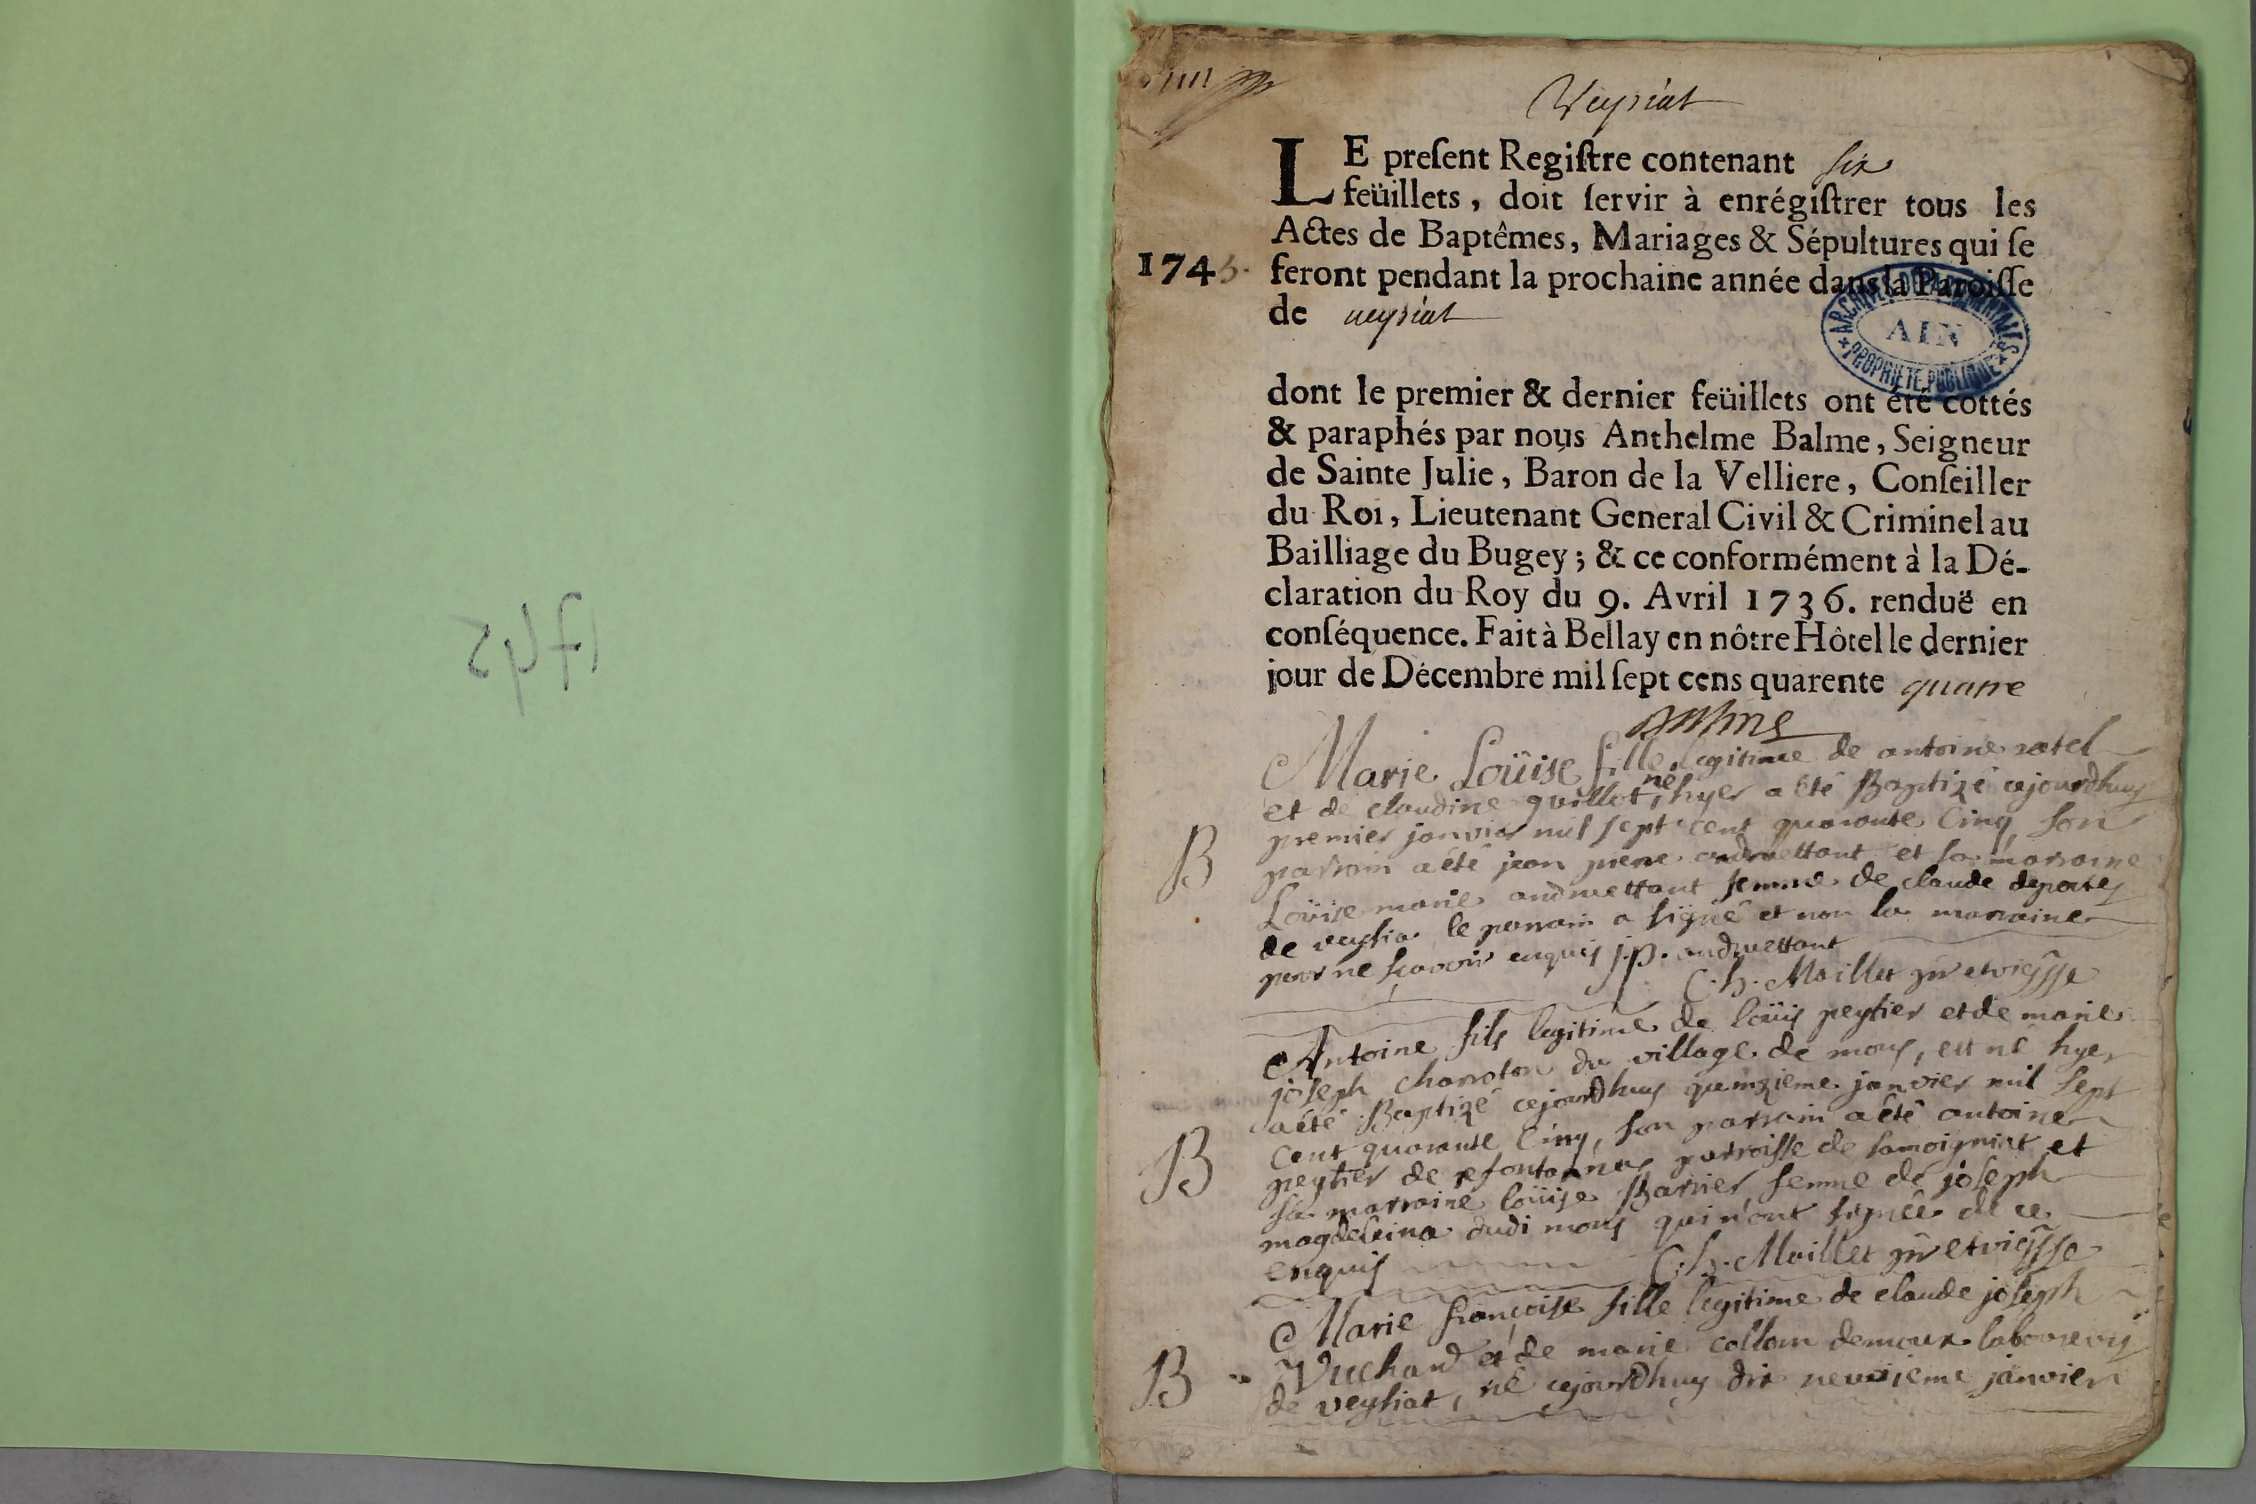 1745
Veysiat
LE preſent Regiſtre contenant six
feüillets, doit ſervir à enrégiſtrer tous les
Actes de Baptêmes, Mariages & Sépultures qui ſe
1745. feront pendant la prochaine année dans la Paroiſſe
de veysiat
ARCHIVES DEPARTEMENTALES
AIN
PROPRIETE PUBLIQUE
dont le premier & dernier feüillets ont été cottés
& paraphés par nous Anthelme Balme, Seigneur
de Sainte Julie, Baron de la Velliere, Conſeiller
du Roi, Lieutenant General Civil & Criminel au
Bailliage du Bugey; & ce conformément à la Dé-
claration du Roy du 9. Avril 1736. renduë en
conſéquence. Fait à Bellay en nôtre Hôtel le dernier
jour de Décembre mil ſept cens quarente quatre
Marie Loüise fille legitime de antoine ratel
et de claudine guillot, né hyer a été Baptizé cejourdhuy
B premier janvier mil sept cent quarante Cinq son
parrain a été jean piere andruettant et sa marraine
Loüise marie andruettant femme de claude deportes
de veysia le parrain a signé et non la marraine
pour ne scavoir enquis j.p. andruettant
C.h. Maillet
Antoine fils legitime de loüis peytier et de marie
joseph charroton du village de mons, est né hyer
a été Baptizé cejourdhuy quinzieme janvier mil sept
B cent quarante Cinq, son parrain a été antoine
peytier de refontanas parroisse de samoigniat et
sa marraine loüise Barrier femme de joseph
magdeleina dudi mons qui n'ont signée de ce
enquis C.h. Maillet
Marie françoise fille legitime de claude joseph
B Vuchard et de marie collom demoux laboureurs
de veysiat, né cejourdhuy dix neuvieme janvier